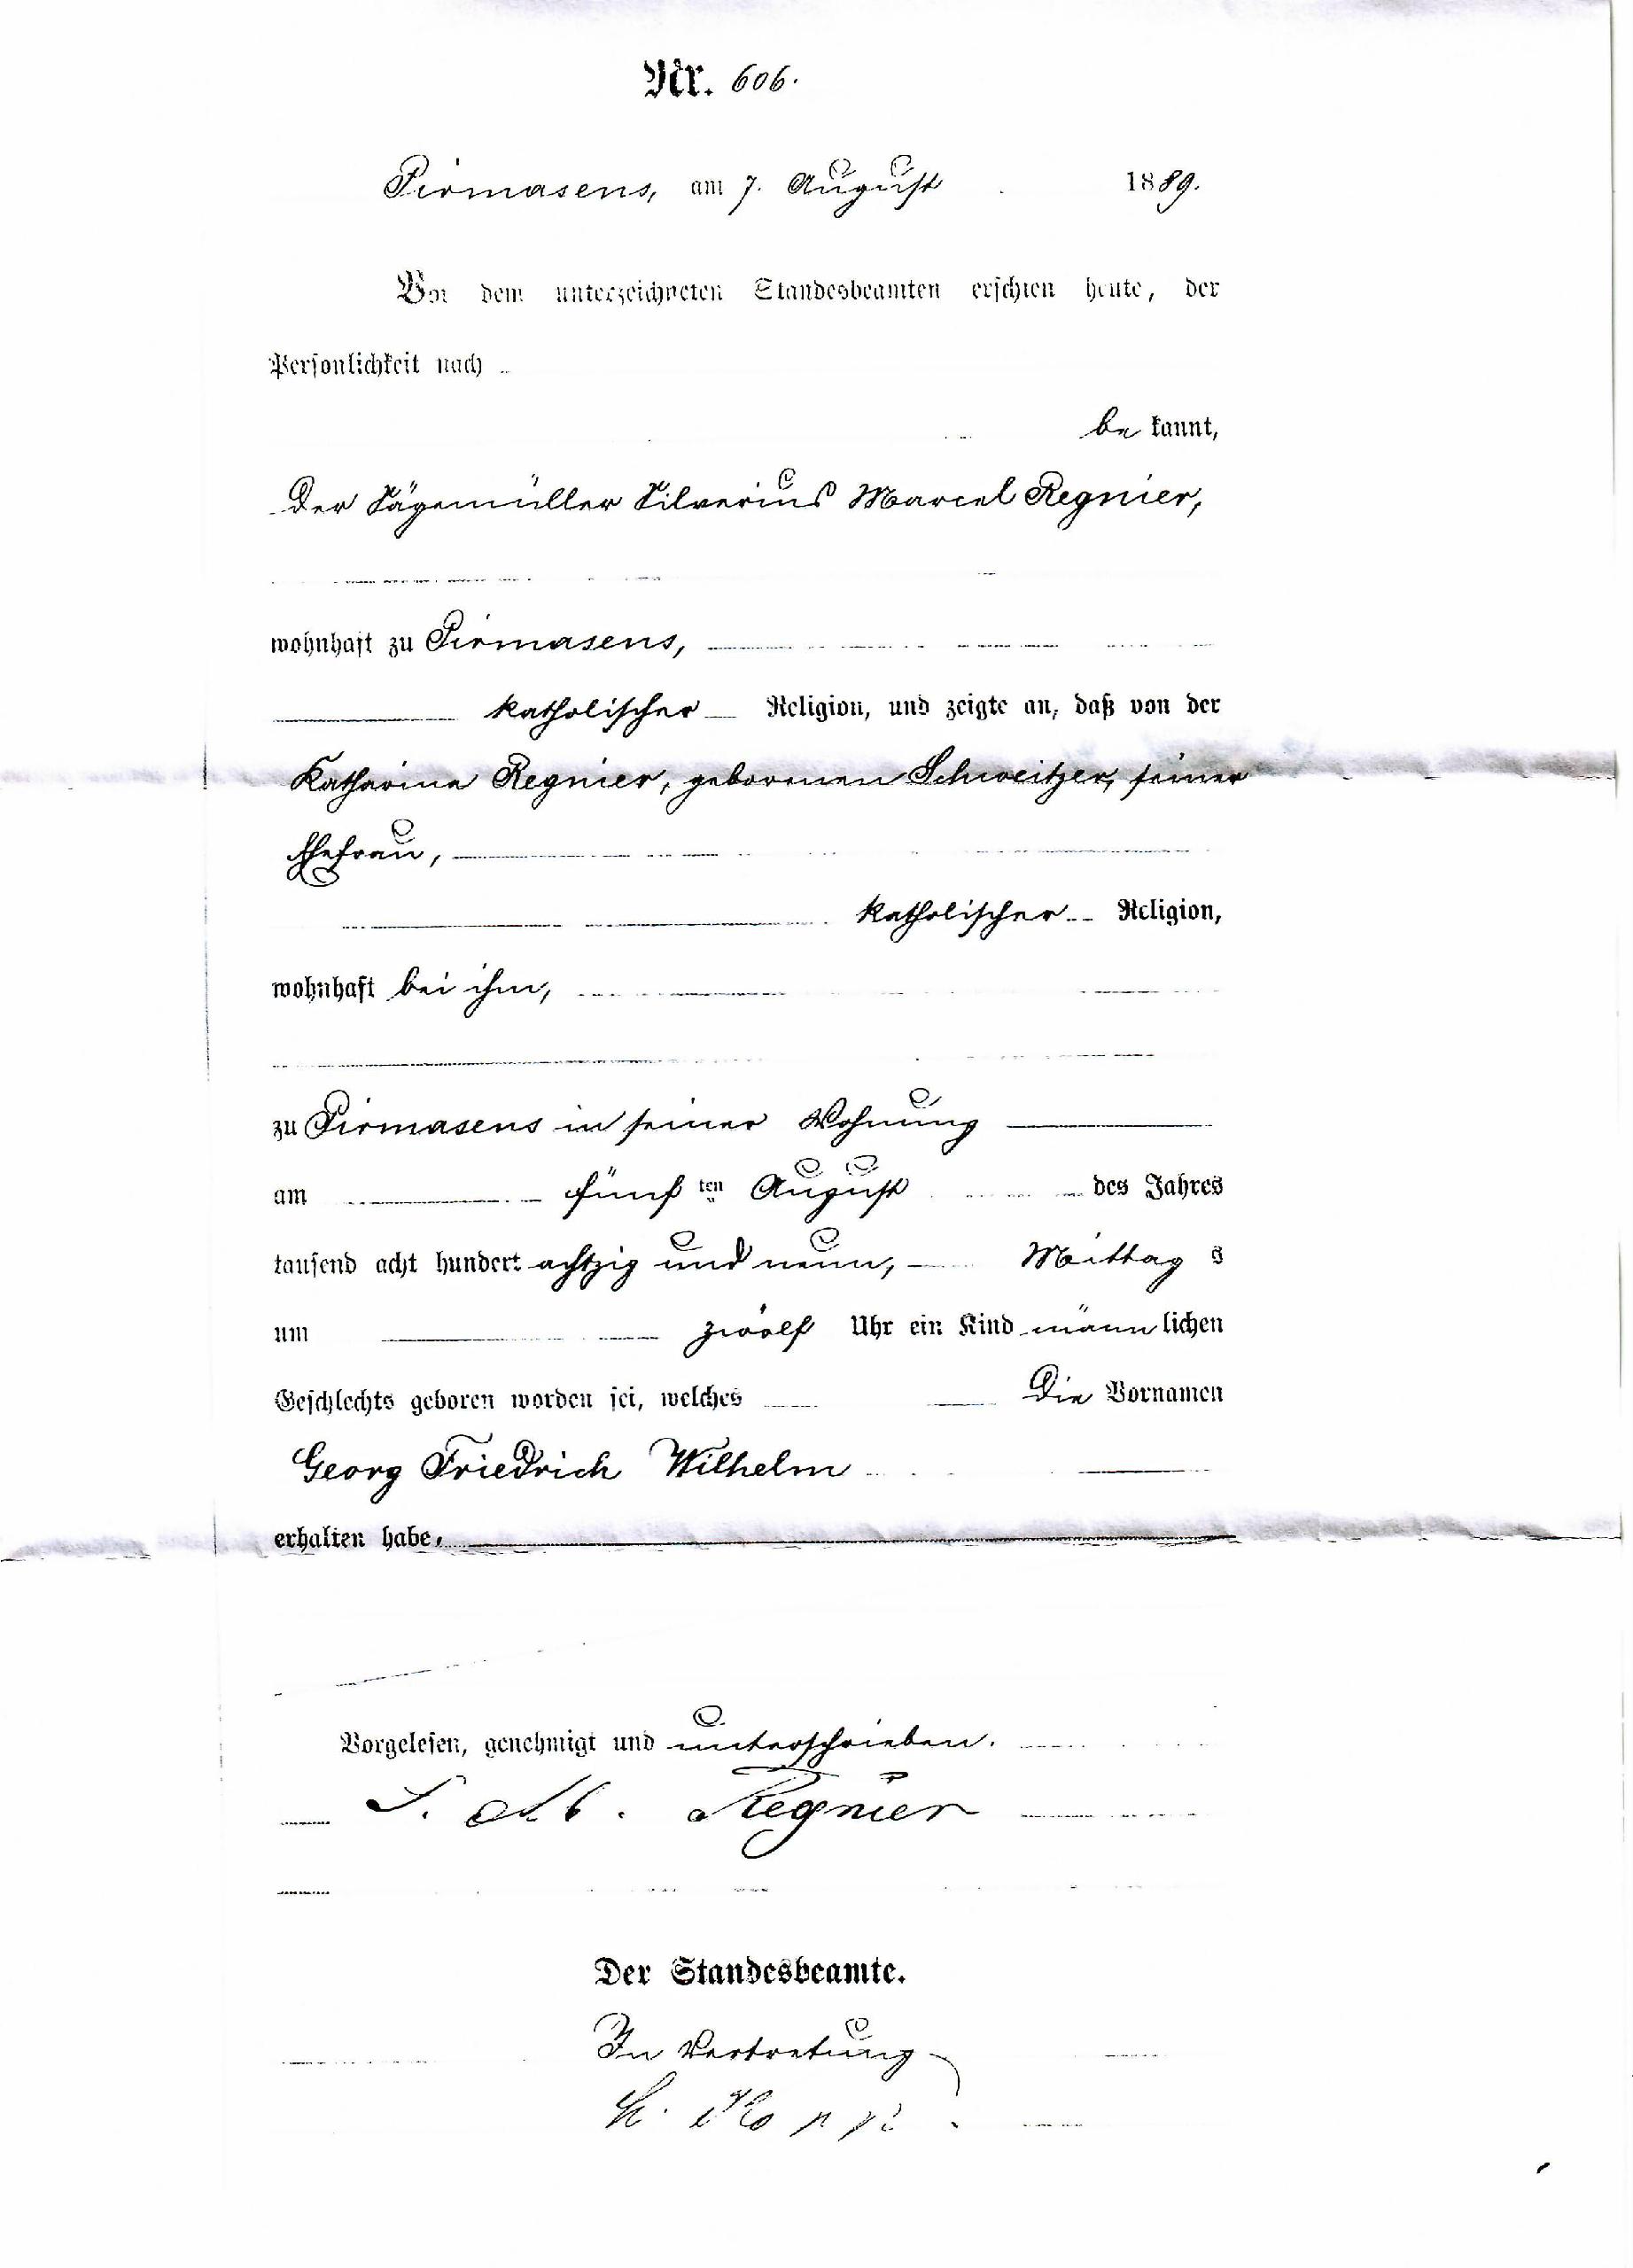 Nr. 606.
Pirmasens, am 7. August 1889.
Vor dem unterzeichneten Standesbeamten erschien heute, der
Persönlichkeit nach
be kannt,
der Sägemüller Silverius Marcel Regnier,
wohnhaft zu Pirmasens,
katholischer Religion, und zeigte an, daß von der
Katharina Regnier, geborenen Schweitzer, seiner
Ehefrau,
katholischer Religion,
wohnhaft bei ihm,
zu Pirmasens in seiner Wohnung
am fünf ten August des Jahres
tausend acht hundert achtzig und neun, Mittag s
um zwölf Uhr ein Kind männ lichen
Geschlechts geboren worden sei, welches die Vornamen
Georg Friedrich Wilhelm
erhalten habe.
Vorgelesen, genehmigt und unterschrieben.
S. M. Regnier
Der Standesbeamte.
In Vertretung